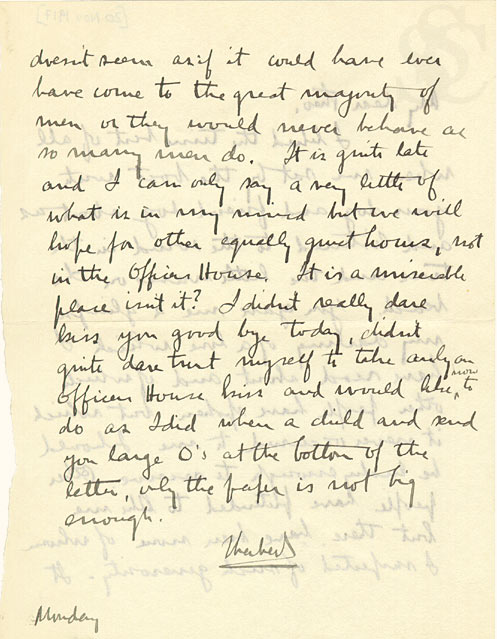 [20 NOV 1917]
doesn't seem as if it could have ever
have come to the great majority of
men or they would never behave as
so many men do. It is quite late
and I can only say a very little of
what is in my mind but we will
hope for other equally quiet hours, not
in the Officers House. It is a miserable
place isn't it? I didn't really dare
kiss you good bye today, didn't
quite dare trust myself to take only an
Officers House kiss and would like, now to
do as I did when a child and send
you large O's at the bottom of the
letter, only the paper is not big
enough.
Herbert
Monday